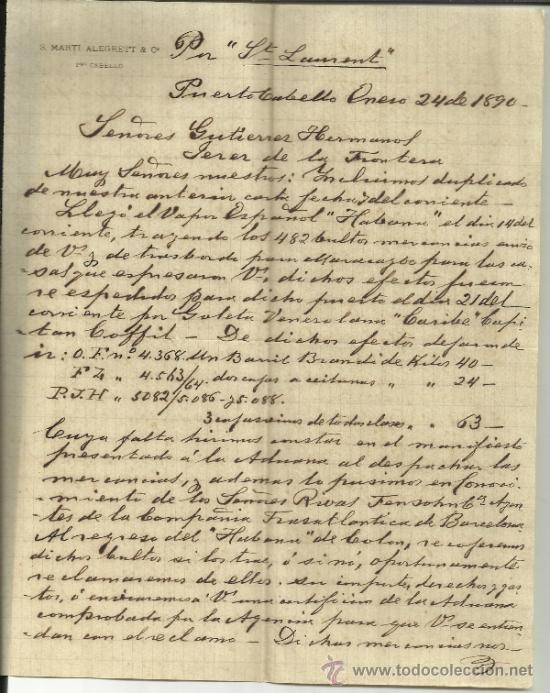 S. MARTI ALEGRETT & Cª
Pto CABELLO
Por "St Laurent"
Puerto Cabello Enero 24 de 1890-
Señores Gutierrez Hermanos
Jerez de la Frontera
Muy Señores nuestros: Incluimos duplicado
de nuestra anterior carta fecha 7 del corriente -
Llegó el Vapor Español "Habana" el dia 14 del
corriente, trayendo los 482 bultos mercancias envio
de Vs de trasbordo para Maracaybo para las ca-
sas que espresaron Vs, dichos efectos fueron
reespedidos para dicho puerto el dia 21 del
corriente por Goleta Venezolana "Caribe" Capi-
tan Coffil - De dichos efectos dejaron de
ir: O.F. nº 4.368 Un Barril Brandi de Kilos 40-
F Z " 4.563/64 dos cajas aceitunas " " 24-
P.J.H " 5082/5.086-75.088.
3 cajas vinos de todas clases " " 63-
Cuya falta hicimos constar en el manifiesto
presentado á la Aduana al despachar las
mercancias, y ademas lo pusimos en Conoci-
miento de los Señores Rivas Fensohn Cª Agen-
tes de la Compañia Trasatlantica de Barcelona
Al regreso del "Habana" de Colon, recogeremos
dichos bultos si los trae, ó sinó, oportunamente
reclamaremos de ellos su importe, derechos y gas-
tos, ó enviaremos á Vs una certificion de la Aduana
comprobada por la Agencia para que Vs se entien-
dan con el reclamo - Dichas mercancias nos-
todocoleccion
www.todocoleccion.net